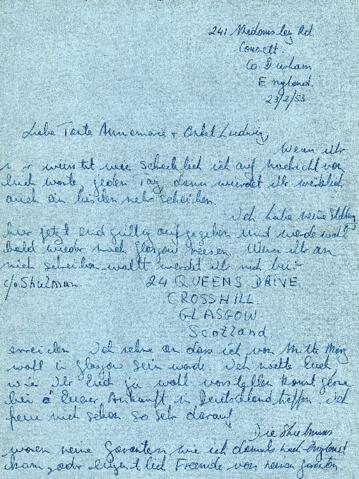 241 Medomsley Rd
Consett.
Co. Durham
England.
23/2/53
Liebe Tante Annemarie + Onkel Ludwig,
Wenn ihr
nur wüsstet wie schrecklich ich auf nachricht von
Euch warte, jeden Tag, dann würdet ihr wirklich
auch ein bischen mehr schreiben.
Ich habe meine Stellung
hier jetzt endgültig aufgegeben und werde wohl
bald wieder nach Glasgow reisen. Wenn ihr an
mich schreiben wollt werdet ihr mich bei:-
c/o Shulman
24 QUEENS DRIVE
CROSSHILL
GLASGOW
Scotland
erreichen. Ich rechne an dass ich von Mitte März
wohl in Glasgow sein werde. Ich möchte Euch
wie Ihr Euch ja wohl vorstellen könnt gerne
bei Eurer Ankunft in Deutschland treffen. Ich
freue mich schon so sehr darauf.
Die Shulmans
waren meine Garanten wie ich damals nach England
kam, oder eigentlich Freunde von meinen Garanten